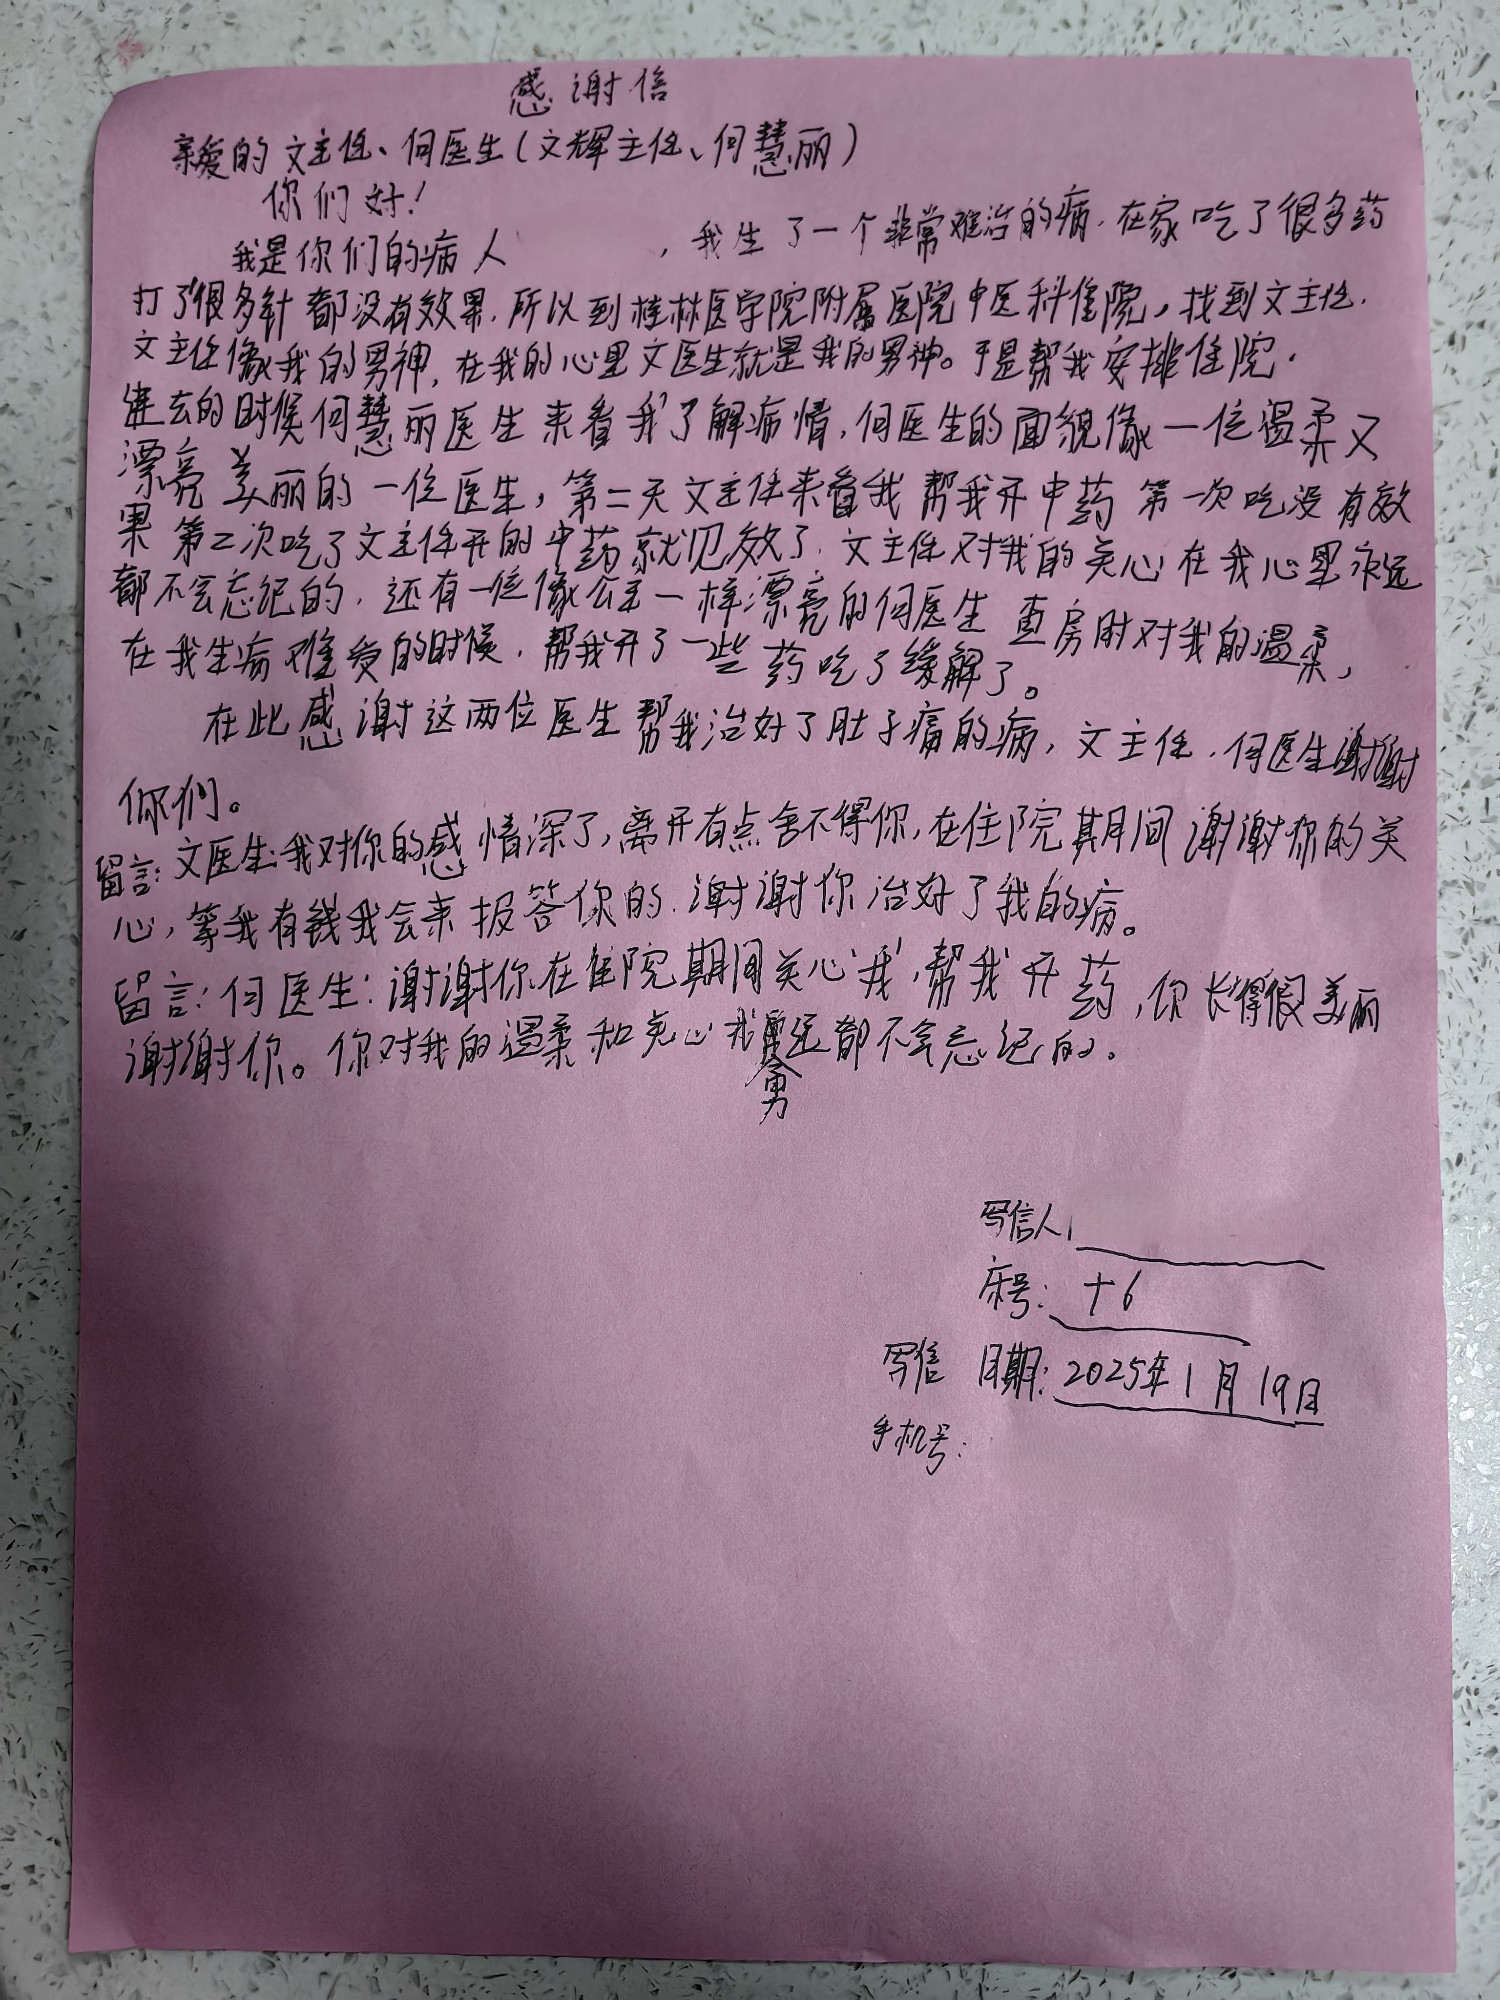 感谢信
亲爱的文主任、何医生(文辉主任、何慧丽)
你们好!
我是你们的病人 ,我生了一个非常难治的病,在家吃了很多药
打了很多针都没有效果,所以到桂林医学院附属医院中医科住院,找到文主任.
文主任像我的男神,在我的心里文医生就是我的男神。于是帮我安排住院.
进去的时候何慧丽医生来看我了解病情,何医生的面貌像一位温柔又
漂亮美丽的一位医生,第二天文主任来看我帮我开中药第一次吃没有效
果第二次吃了文主任开的中药就见效了,文主任对我的关心在我心里永远
都不会忘记的,还有一位像公主一样漂亮的何医生查房时对我的温柔,
在我生病难受的时候,帮我开了一些药吃了缓解了。
在此感谢这两位医生帮我治好了肚子痛的病,文主任,何医生谢谢
你们。
留言:文医生:我对你的感情深了,离开有点舍不得你,在住院期间谢谢你的关
心,等我有钱我会来报答你的,谢谢你治好了我的病。
留言:何医生:谢谢你在住院期间关心我,帮我开药,你长得很美丽
谢谢你。你对我的温柔和关心我远都不会忘记的.
写信人
床号:十6
写信日期:2025年1月19日
手机号: